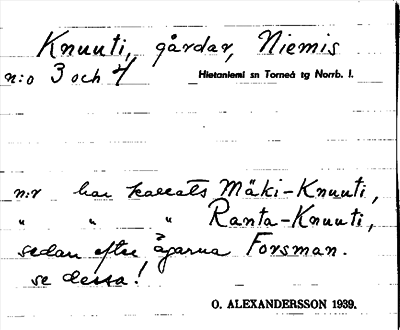 Knuuti, gårdar, Niemis
n:o 3 och 4 Hietaniemi sn Torneå tg Norrb. l.
n:r har kallats Mäki-Knuuti,
" " " Ranta-Knuuti,
sedan efter ägarna Forsman.
se dessa!
O. ALEXANDERSSON 1939.